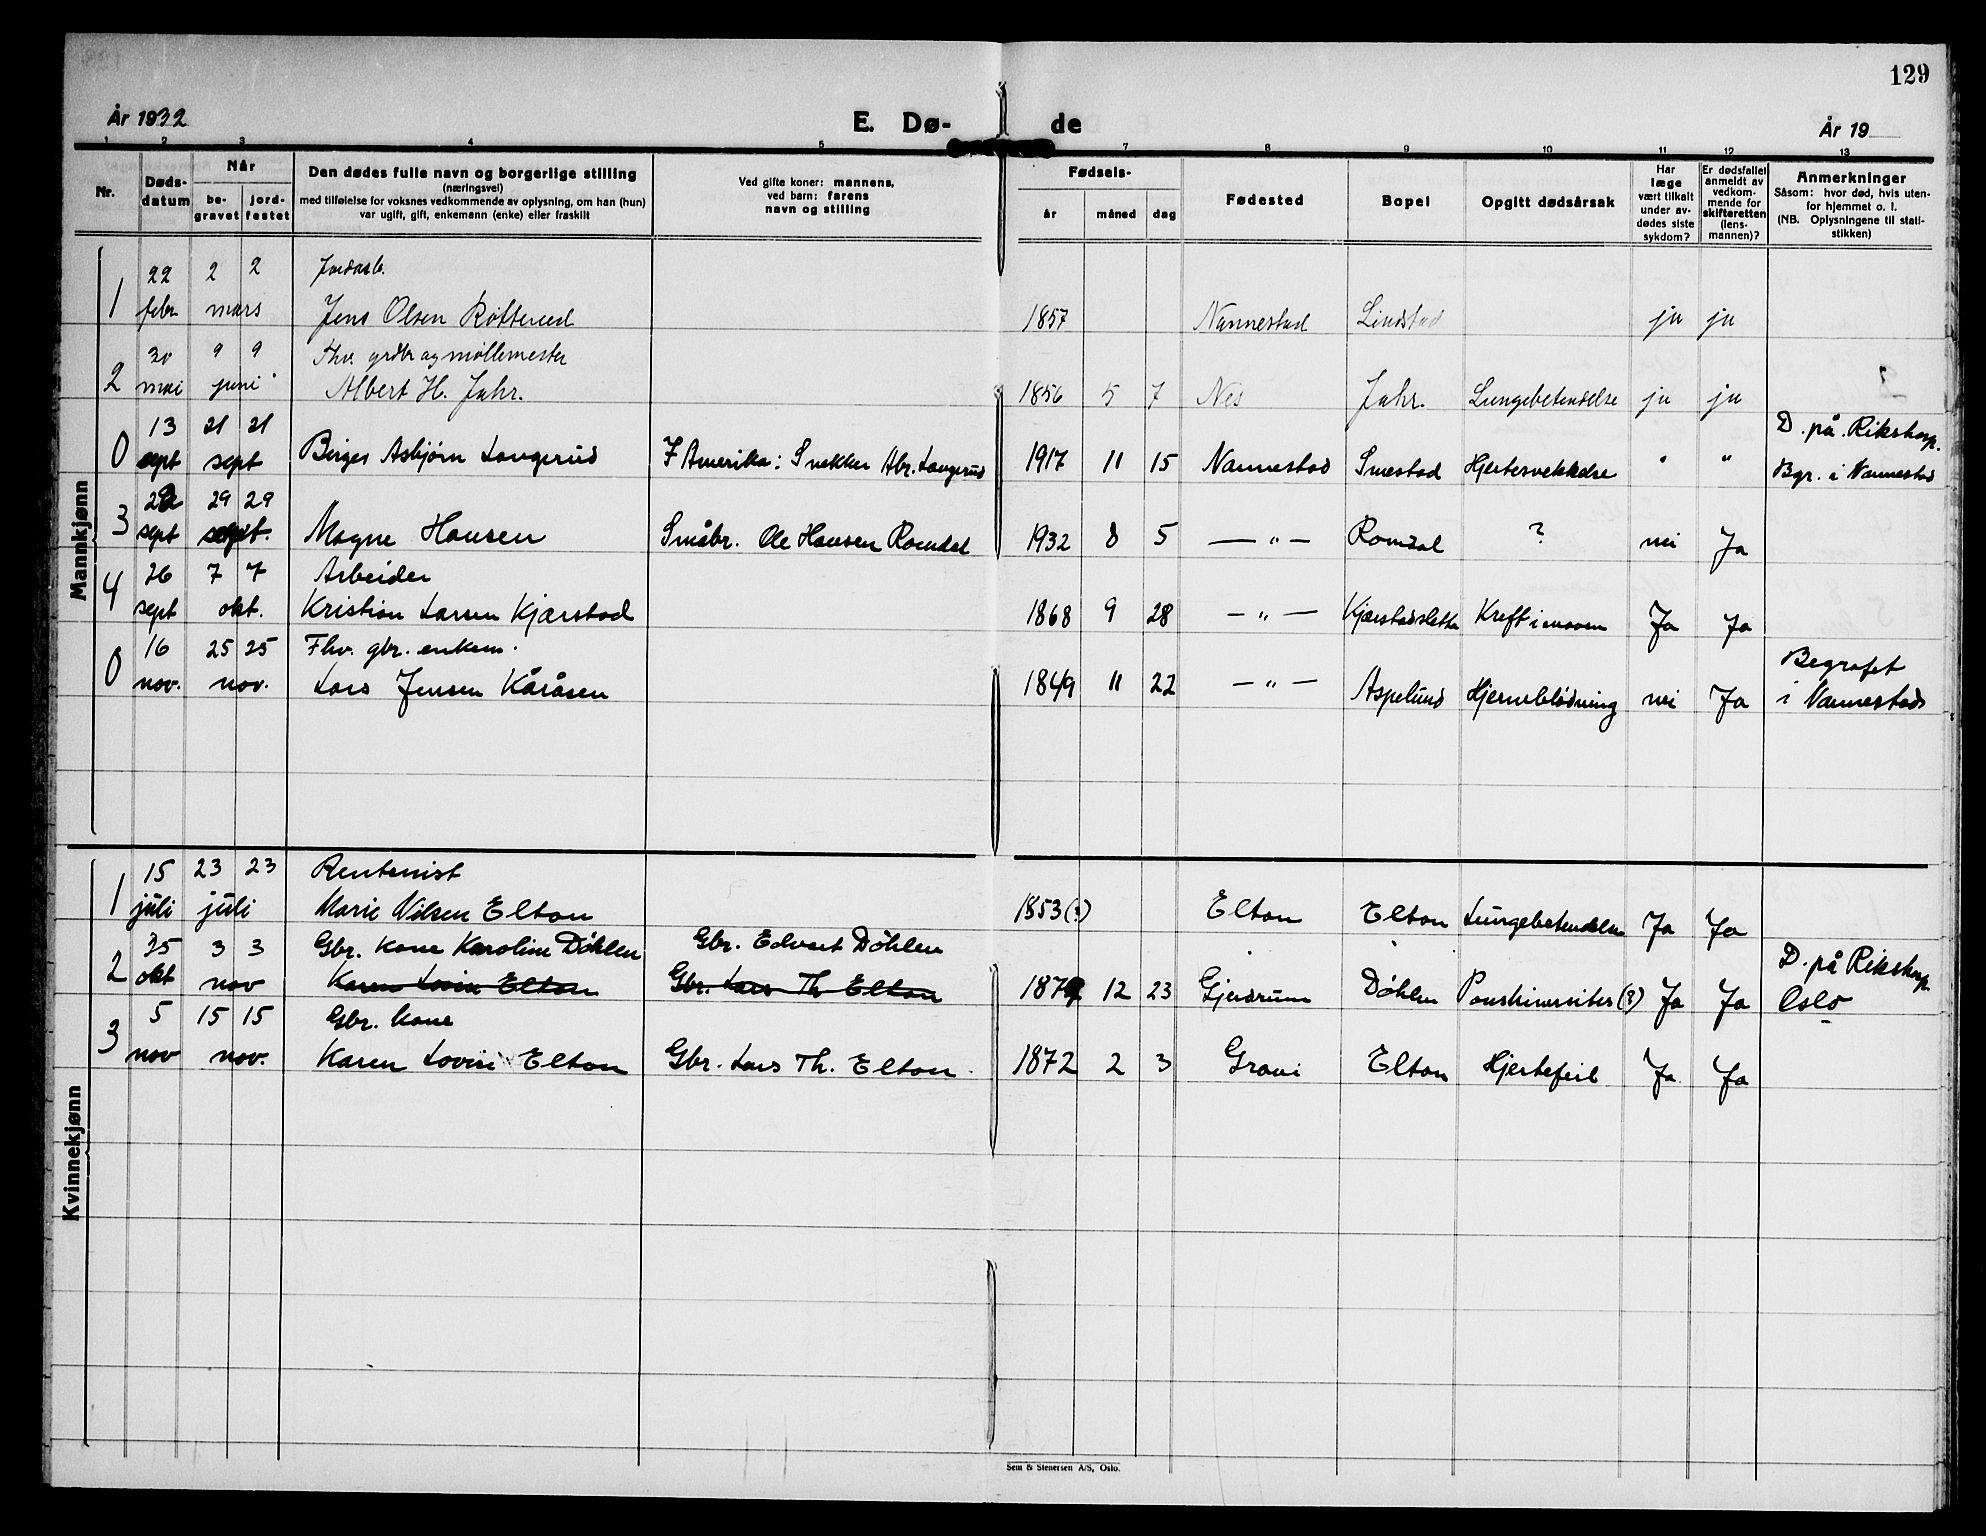 129
År 1932
E. Dø-
de
År 19
1 2 3 4 5 7 8 9 10 11 12 13
Nr.
Døds-
datum
Når
be-
gravet
jord-
festet
Den dødes fulle navn og borgerlige stilling
(næringsvei)
med tilføielse for voksnes vedkommende av oplysning, om han (hun)
var ugift, gift, enkemann (enke) eller fraskilt
Ved gifte koner: mannens,
ved barn: farens
navn og stilling
Fødsels-
år måned dag
Fødested
Bopel
Opgitt dødsårsak
Har
læge
vært tilkalt
under av-
dødes siste
sykdom?
Er dødsfallet
anmeldt av
vedkom-
mende for
skifteretten
(lens-
mannen)?
Anmerkninger
Såsom: hvor død, hvis uten-
for hjemmet o. l.
(NB. Oplysningene til stati-
stikken)
Mankjønn
22 2 2
1 febr mars Jens Olsen Rotterud 1857 Nannestad Lindstad ja ja
30 9 9 Fhv. grdbr og møllemester
2 mai juni Albert H. Jahr. 1856 5 7 Nes Jahr. Lungebetendelse ja ja
13 21 21 D. på Rikshosp.
0 sept sept Birger Asbjørn Langerud I Amerika: Snekker Abr. Langerud 1917 11 15 Nannestad Smestad Hjertesvekkelse " " Bgr. i Nannestad
29 29
3 sept sept. Magne Hansen Småbr. Ole Hansen Romdal 1932 8 5 — " — Romdal ? nei Ja
26 7 7 Arbeider
4 sept okt. Kristian Larsen Kjærstad 1868 9 28 — " — Kjærstadsletta Kreft i maven Ja Ja
16 25 25 Fhv. gbr. enkem. Begravet
0 nov. nov. Lars Jensen Kåråsen 1849 11 22 — " — Aspelund Hjerneblødning nei Ja i Nannestad
Kvinnekjønn
15 23 23 Rentenist
1 juli juli Marie Nilsen Elton 1853(?) Elton Elton Lungebetendelse Ja Ja
3 3 Gbr. kone Karoline Døhlen Gbr. Edvart Døhlen D. på Rikshosp.
2 okt nov Karen Lovise Elton Gbr. Lars Th Elton 12 23 Gjerdrum Døhlen Ja Ja Oslo
5 15 15 Gbr. kone
3 nov nov. Karen Lovise Elton Gbr. Lars Th. Elton. 1872 2 3 Gravi Elton Hjertefeil Ja Ja
Sem & Stenersen A/S, Oslo.